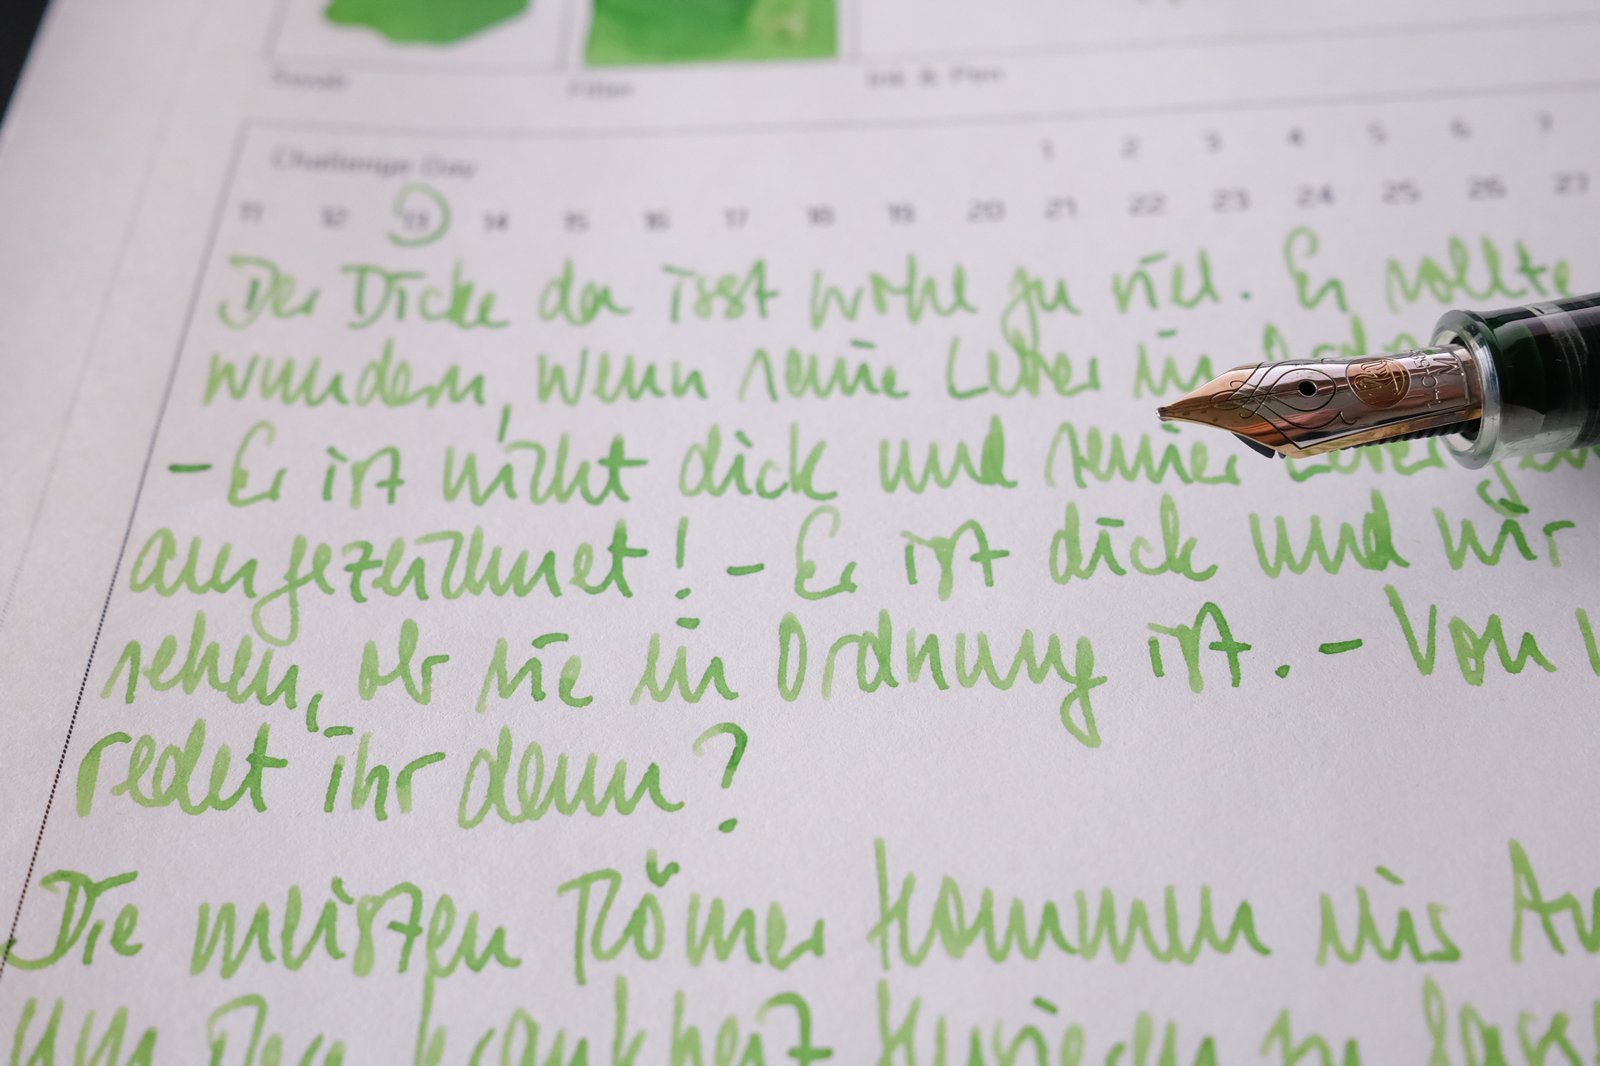 Swab Filter Ink & Pen
Challenge Day 1 2 3 4 5 6 7
11 12 13 14 15 16 17 18 19 20 21 22 23 24 25 26 27
Der Dicke da isst wohl zu viel. Er sollte
wundern, wenn seine Leber in
- Er ist nicht dick und seiner Leber
ausgezeichnet! - Er ist dick und wir
sehen, ob sie in Ordnung ist. - Von
redet ihr denn?
Die meisten Römer kommen ins
um Krankheit kurieren zu